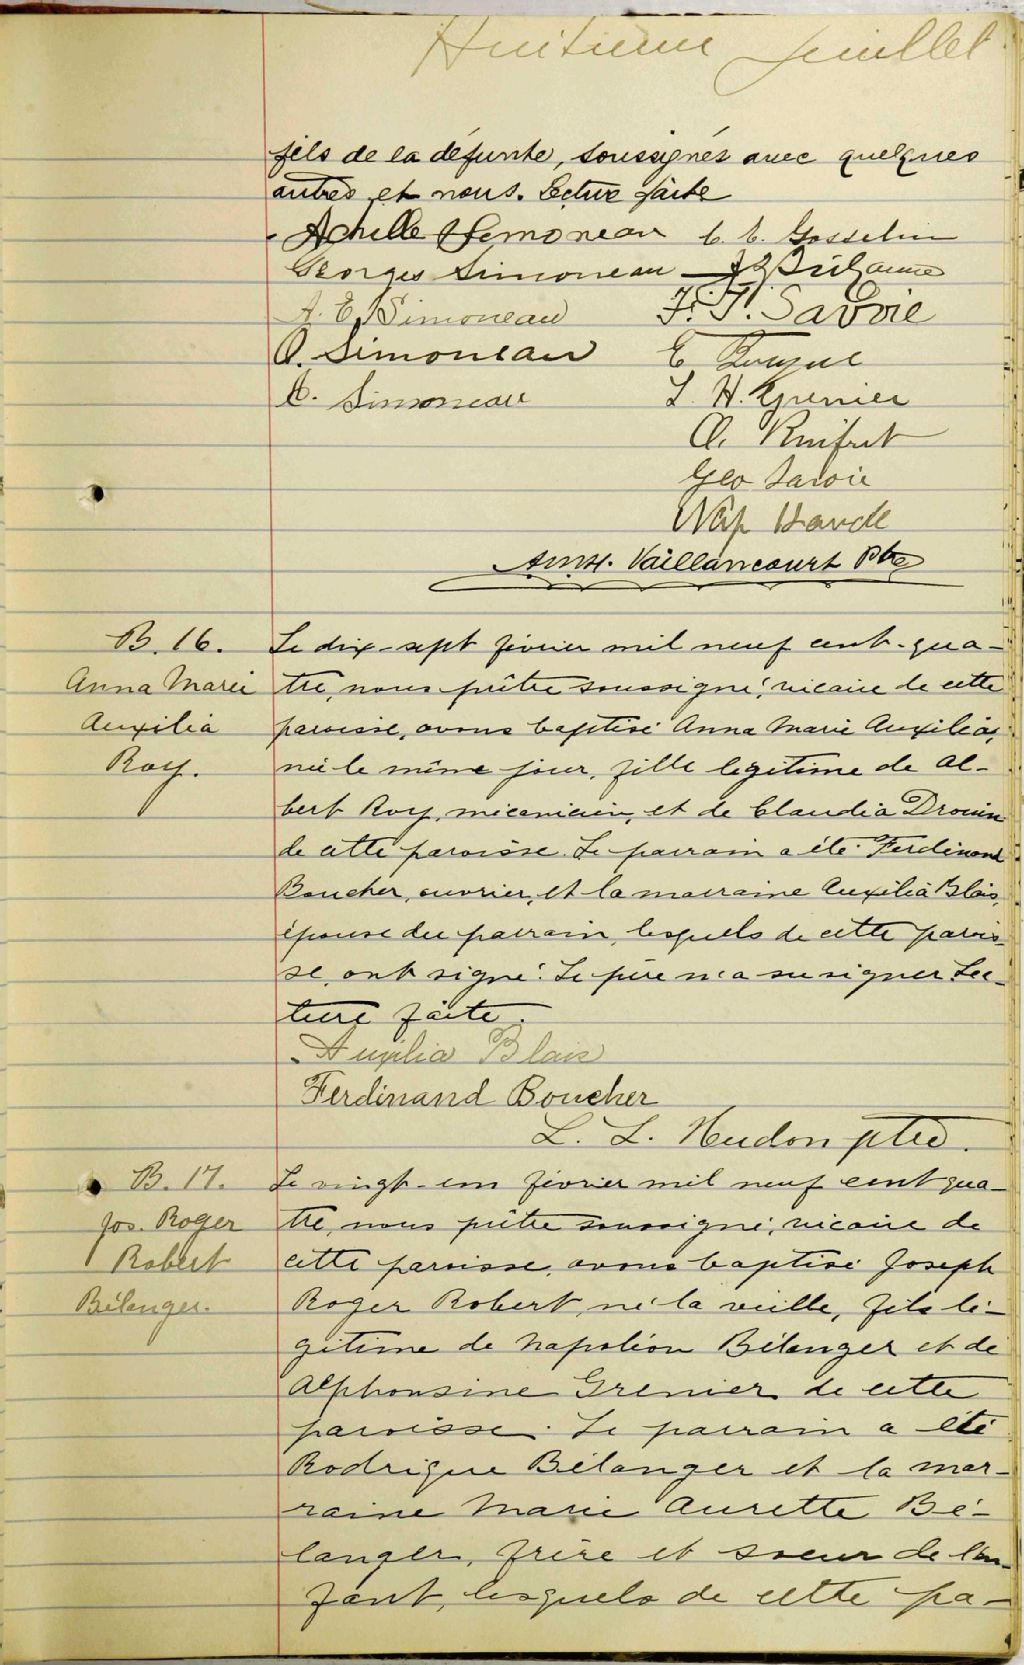 Huitième feuillet
fils de la défunte, soussignés avec quelques
autres et nous. Lecture faite
Achille Simoneau C. E. Gosselin
Georges Simoneau
A. E. Simoneau F. T. Savoie
O. Simoneau E
A. Simoneau L. H. Grenier
A. Rinfret
Geo Savoie
Nap Houde
Am. H. Vaillancourt Ptre
B. 16. Le dix-sept février mil neuf cent-qua-
Anna Marie tre, nous prêtre soussigné, vicaire de cette
Auxilia paroisse, avons baptisé Anna Marie Auxilia,
Roy. née le même jour, fille légitime de Al-
bert Roy, mécanicien, et de Claudia Drouin
de cette paroisse. Le parrain a été Ferdinand
Boucher, ouvrier, et la marraine Auxilia Blais,
épouse du parrain, lesquels de cette parois-
se, ont signé. Le père n'a su signer Lec-
ture faite.
Auxilia Blais
Ferdinand Boucher
L. L. Hudon ptre.
B. 17. Le vingt-un février mil neuf cent qua-
Jos. Roger tre, nous prêtre soussigné, vicaire de
Robert cette paroisse, avons baptisé Joseph
Bélanger. Roger Robert, né la veille, fils lé-
gitime de Napoléon Bélanger et de
Alphonsine Grenier de cette
paroisse. Le parrain a été
Rodrigue Bélanger et la mar-
raine Marie Aurette Bé-
langer, frère et soeur de l'en-
fant, lesquels de cette pa-